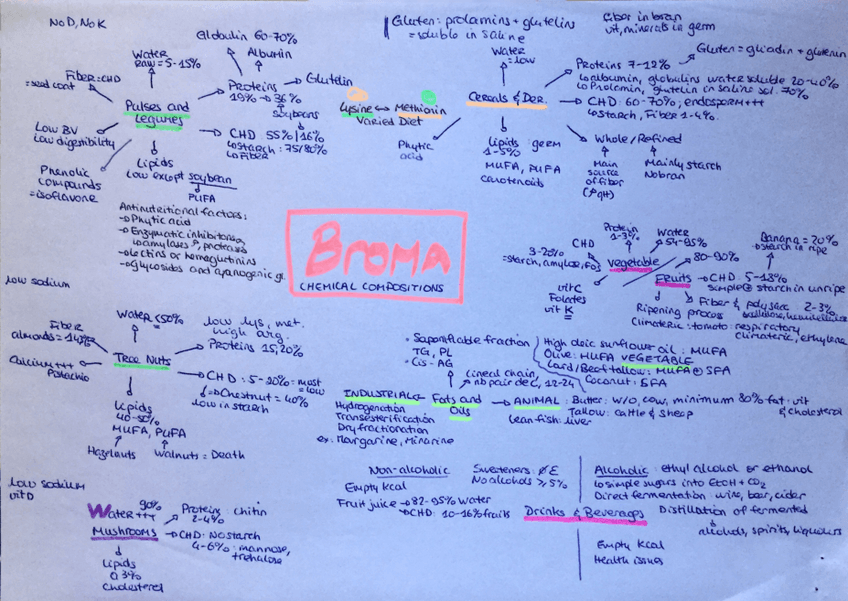 No D, No K
Globulin 60-70%
Albumin
Water
Raw = 5-15%
Fiber = CHD
= seed coat
Proteins
19% → 36%
Soybeans
Glutelin
Pulses and
Legumes
CHD 55% | 16%
↳ Starch: 75/80%
↳ Fiber
Low BV
Low digestibility
Phenolic
compounds
= isoflavone
Lipids
Low except soybean
PUFA
Antinutritional factors:
→ Phytic acid
→ Enzymatic inhibitors
amylases proteases
→ Lectins or hemaglutinins
→ glycosides and cyanogenic gl.
Lysine ↔ Methionin
Varied Diet
Gluten: prolamins + glutelins
= soluble in saline
fiber in bran
vit, minerals in germ
Water
= low
Cereals & Der.
Proteins 7-12%
Gluten = gliadin + glutenin
↳ albumin, globulins water soluble 20-40%
↳ Prolamin, glutelin in salins sol. 70%
CHD: 60-70%; endosperm +++
↳ Starch, Fiber 1-4%.
Phytic
acid
Lipids: germ
1-5%
MUFA, PUFA
carotenoids
Whole / Refined
Main
source
of fiber
Mainly starch
No bran
BROMA
CHEMICAL COMPOSITIONS
Protein
1-3%
Water
54-95%
3-20%
CHD
= starch, amylose, fos
Vegetable
80-90%
Banana = 20%
→ starch in ripe
Vit C
Folates
vit K
Fruits
→ CHD 5-18%
simple ⊕ starch in unripe
Fiber & polysac 2-3%
cellulose, hemicellulose
Ripening process
Climateric: tomato: respiratory
climateric, ethylene
low sodium
Water <50%
Fiber
almonds = 14%
Calcium +++
Pistachio
Tree Nuts
low lys, met.
high arg.
Proteins 15, 20%
CHD: 5-20% = most
= low
→ Chestnut = 40%
low in starch
Lipids
40-60%
MUFA, PUFA
Hazelnuts
Walnuts = Death
• Saponifiable fraction
TG, PL
• Cis - AG
Lineal chain,
nb pair de C, 12-24
High oleic sunflower oil: MUFA
Olive: MUFA VEGETABLE
Lard/Beef tallow: MUFA ⊕ SFA
Coconut: SFA
INDUSTRIAL ← Fats and
Oils
→ ANIMAL: Butter: W/O, cow, minimum 80% fat: vit
& cholesterol
Tallow: cattle & sheep
Lean fish: liver
Hydrogenation
Transesterification
Dry fractionation
ex: Margarine, Minarine
low sodium
vit D
90%
Water +++
Mushrooms
Proteins: chitin
2-4%
CHD: No starch
4-6%: mannose,
trehalose
Lipids
0,3%
Cholesterol
Non-alcoholic
Empty kcal
Fruit juice → 82-95% water
→ CHD: 10-16% fruits
Sweeteners: ∅ E
No alcohols ≥ 5%
Drinks & Beverages
Alcoholic: ethyl alcohol or ethanol
↳ simple sugars into EtOH + CO2
Direct fermentation: wine, beer, cider
Distillation of fermented
alcohols, spirits, liqueurs
Empty kcal
Health issues